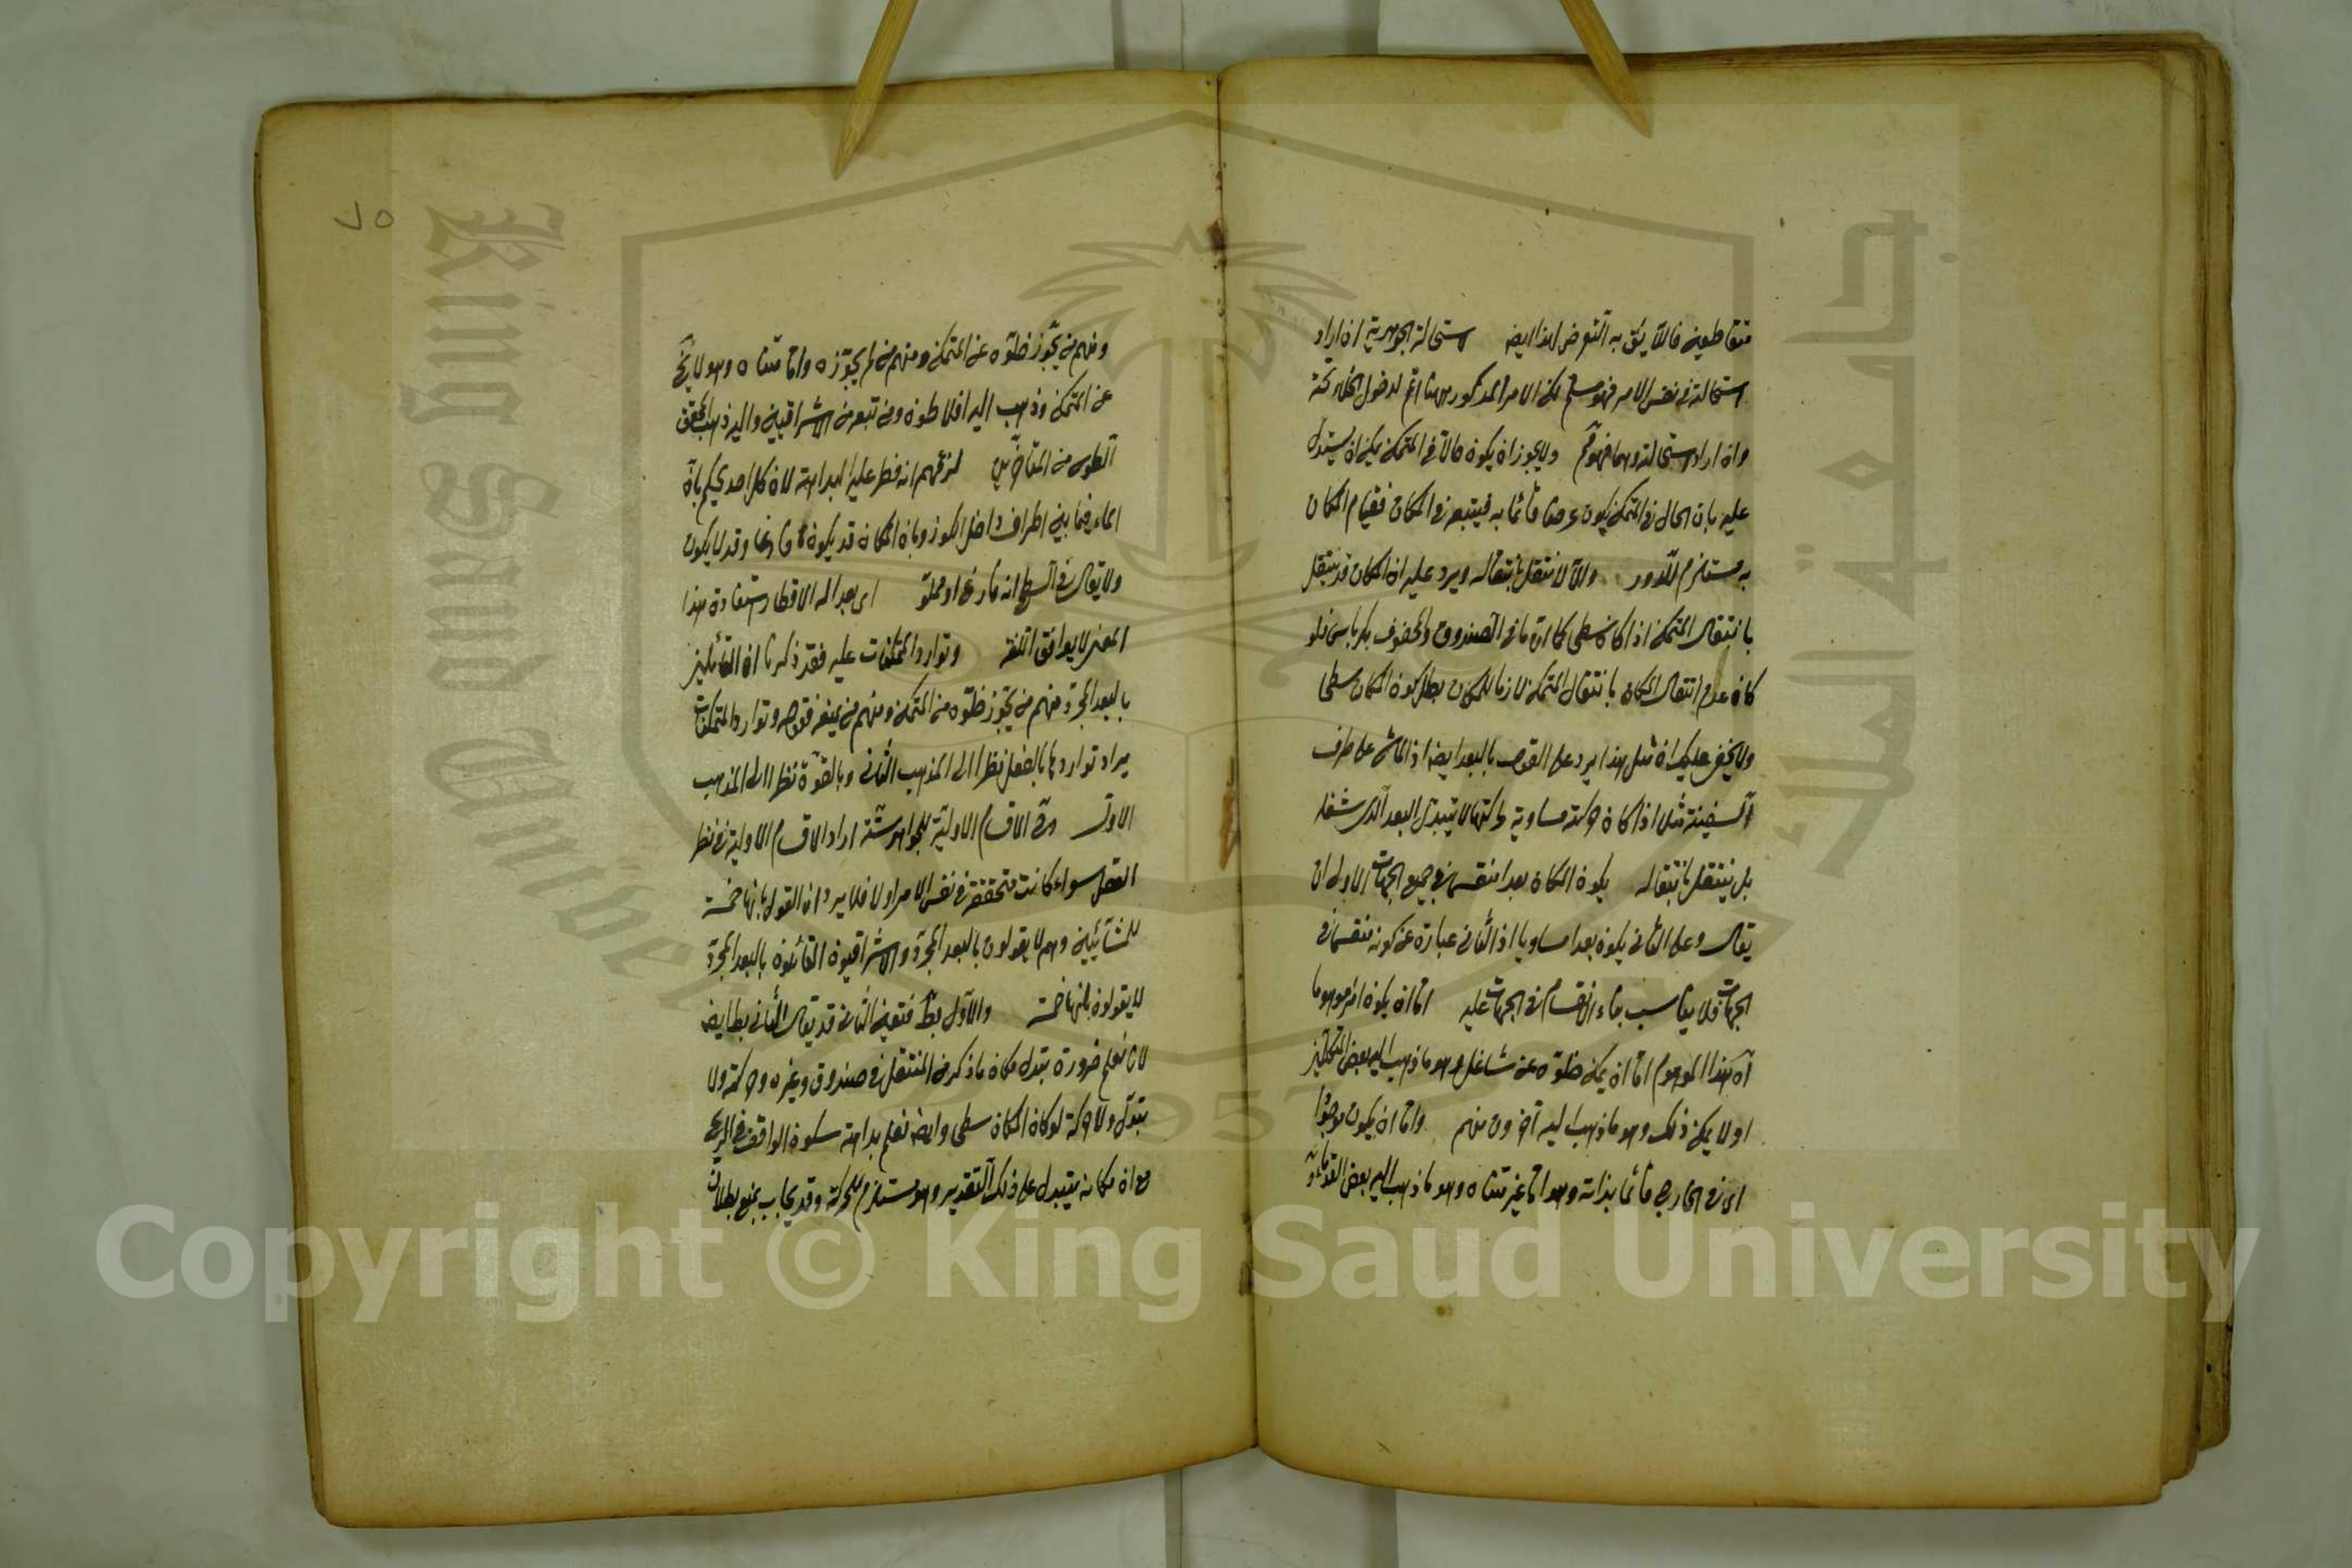 متقاطعين فاللايق به التعرض لهذا ايضا استحالة الجوهرية ان اراد
استحالته في نفس الامر فهو مسلم لكن الامر المذكور ههنا اعم لدخول الخلاء تحته
وان اراد استحالته وهما فهو مم ولا يجوز ان يكون حالا في المتمكن يمكن ان يستدل
عليه بان الحال في المتمكن يكون عرضا قائما به فيتبعه في المكان فقيام المكان
به مستلزم للدور والا لانتقل بانتقاله ويرد عليه ان المكان قد ينتقل
بانتقال المتمكن اذا كان سطحا كما ان ما في الصندوق والمحفوف بكرباس فلو
كان عدم انتقال المكان بانتقال المتمكن لازما للمكان بطل كون المكان سطحا
ولا يخفى عليك ان مثل هذا يرد على القول بالبعد ايضا اذ الماشي على طرف
السفينة مثلا اذا كان حركته مساوية لحركتها لا يتبدل البعد الذي شغله
بل ينتقل بانتقاله يكون المكان بعدا منقسما في جميع الجهات الاولى ان
يقال وعلى الثاني يكون بعدا مساويا اذ الثاني عبارة عن كونه منقسما في
الجهات فلا يناسب بناء الانقسام في الجهات عليه اما ان يكون امرا موهوما
آه هذا الموهوم اما ان يمكن خلوه عن شاغل وهو ما ذهب اليه بعض المتكلمين
او لا يمكن ذلك وهو ما ذهب اليه آخرون منهم واما ان يكون موجودا
اي في الخارج قائما بذاته وهو اما غير متناه وهو ما ذهب اليه بعض القدماء
ومنهم من يجوز خلوه عن المتمكن ومنهم من لم يجوزه واما متناه وهو لا يخ
عن المتمكن وذهب اليه افلاطون ومن تبعه من الاشراقيين واليه ذهب المحقق
الطوسي من المتأخرين لزعمهم انه فطر عليه البداهة لان كل احد يحكم بان
الماء فيما بين اطراف داخل الكوز وبان المكان قد يكون فارغا وقد لا يكون
ولا يقال في السطح انه فارغ او مملو اي بعد له الاقطار استفادة هذا
المعنى لا يوافق اللغة وتوارد المتمكنات عليه فقد ذكرنا ان القائلين
بالبعد المجرد منهم من يجوز خلوه من المتمكن ومنهم من يمنعه فقوله وتوارد المتمكنات
يراد تواردها بالفعل نظرا الى المذهب الثاني وبالقوة نظرا الى المذهب
الاول في الاقسام الاولية للجواهر ستة اراد الاقسام الاولية في نظر
العقل سواء كانت متحققة في نفس الامر او لا فلا يرد ان القول بانها خمسة
للمشائيين وهم لا يقولون بالبعد المجرد والاشراقيون القائلون بالبعد المجرد
لا يقولون بانها خمسة والاول بط فتعين الثاني قد يقال الثاني بط ايضا
لانا نعلم ضرورة تبدل مكان ما ذكر من المنتقل في صندوق وغيره وحركته ولا
تبدل ولا حركة لو كان المكان سطحا وايضا نعلم بداهة سكون الواقف في الريح
مع ان مكانه يتبدل على ذلك التقدير وهو مستلزم للحركة وقد يجاب بمنع بطلان
Copyright © King Saud University